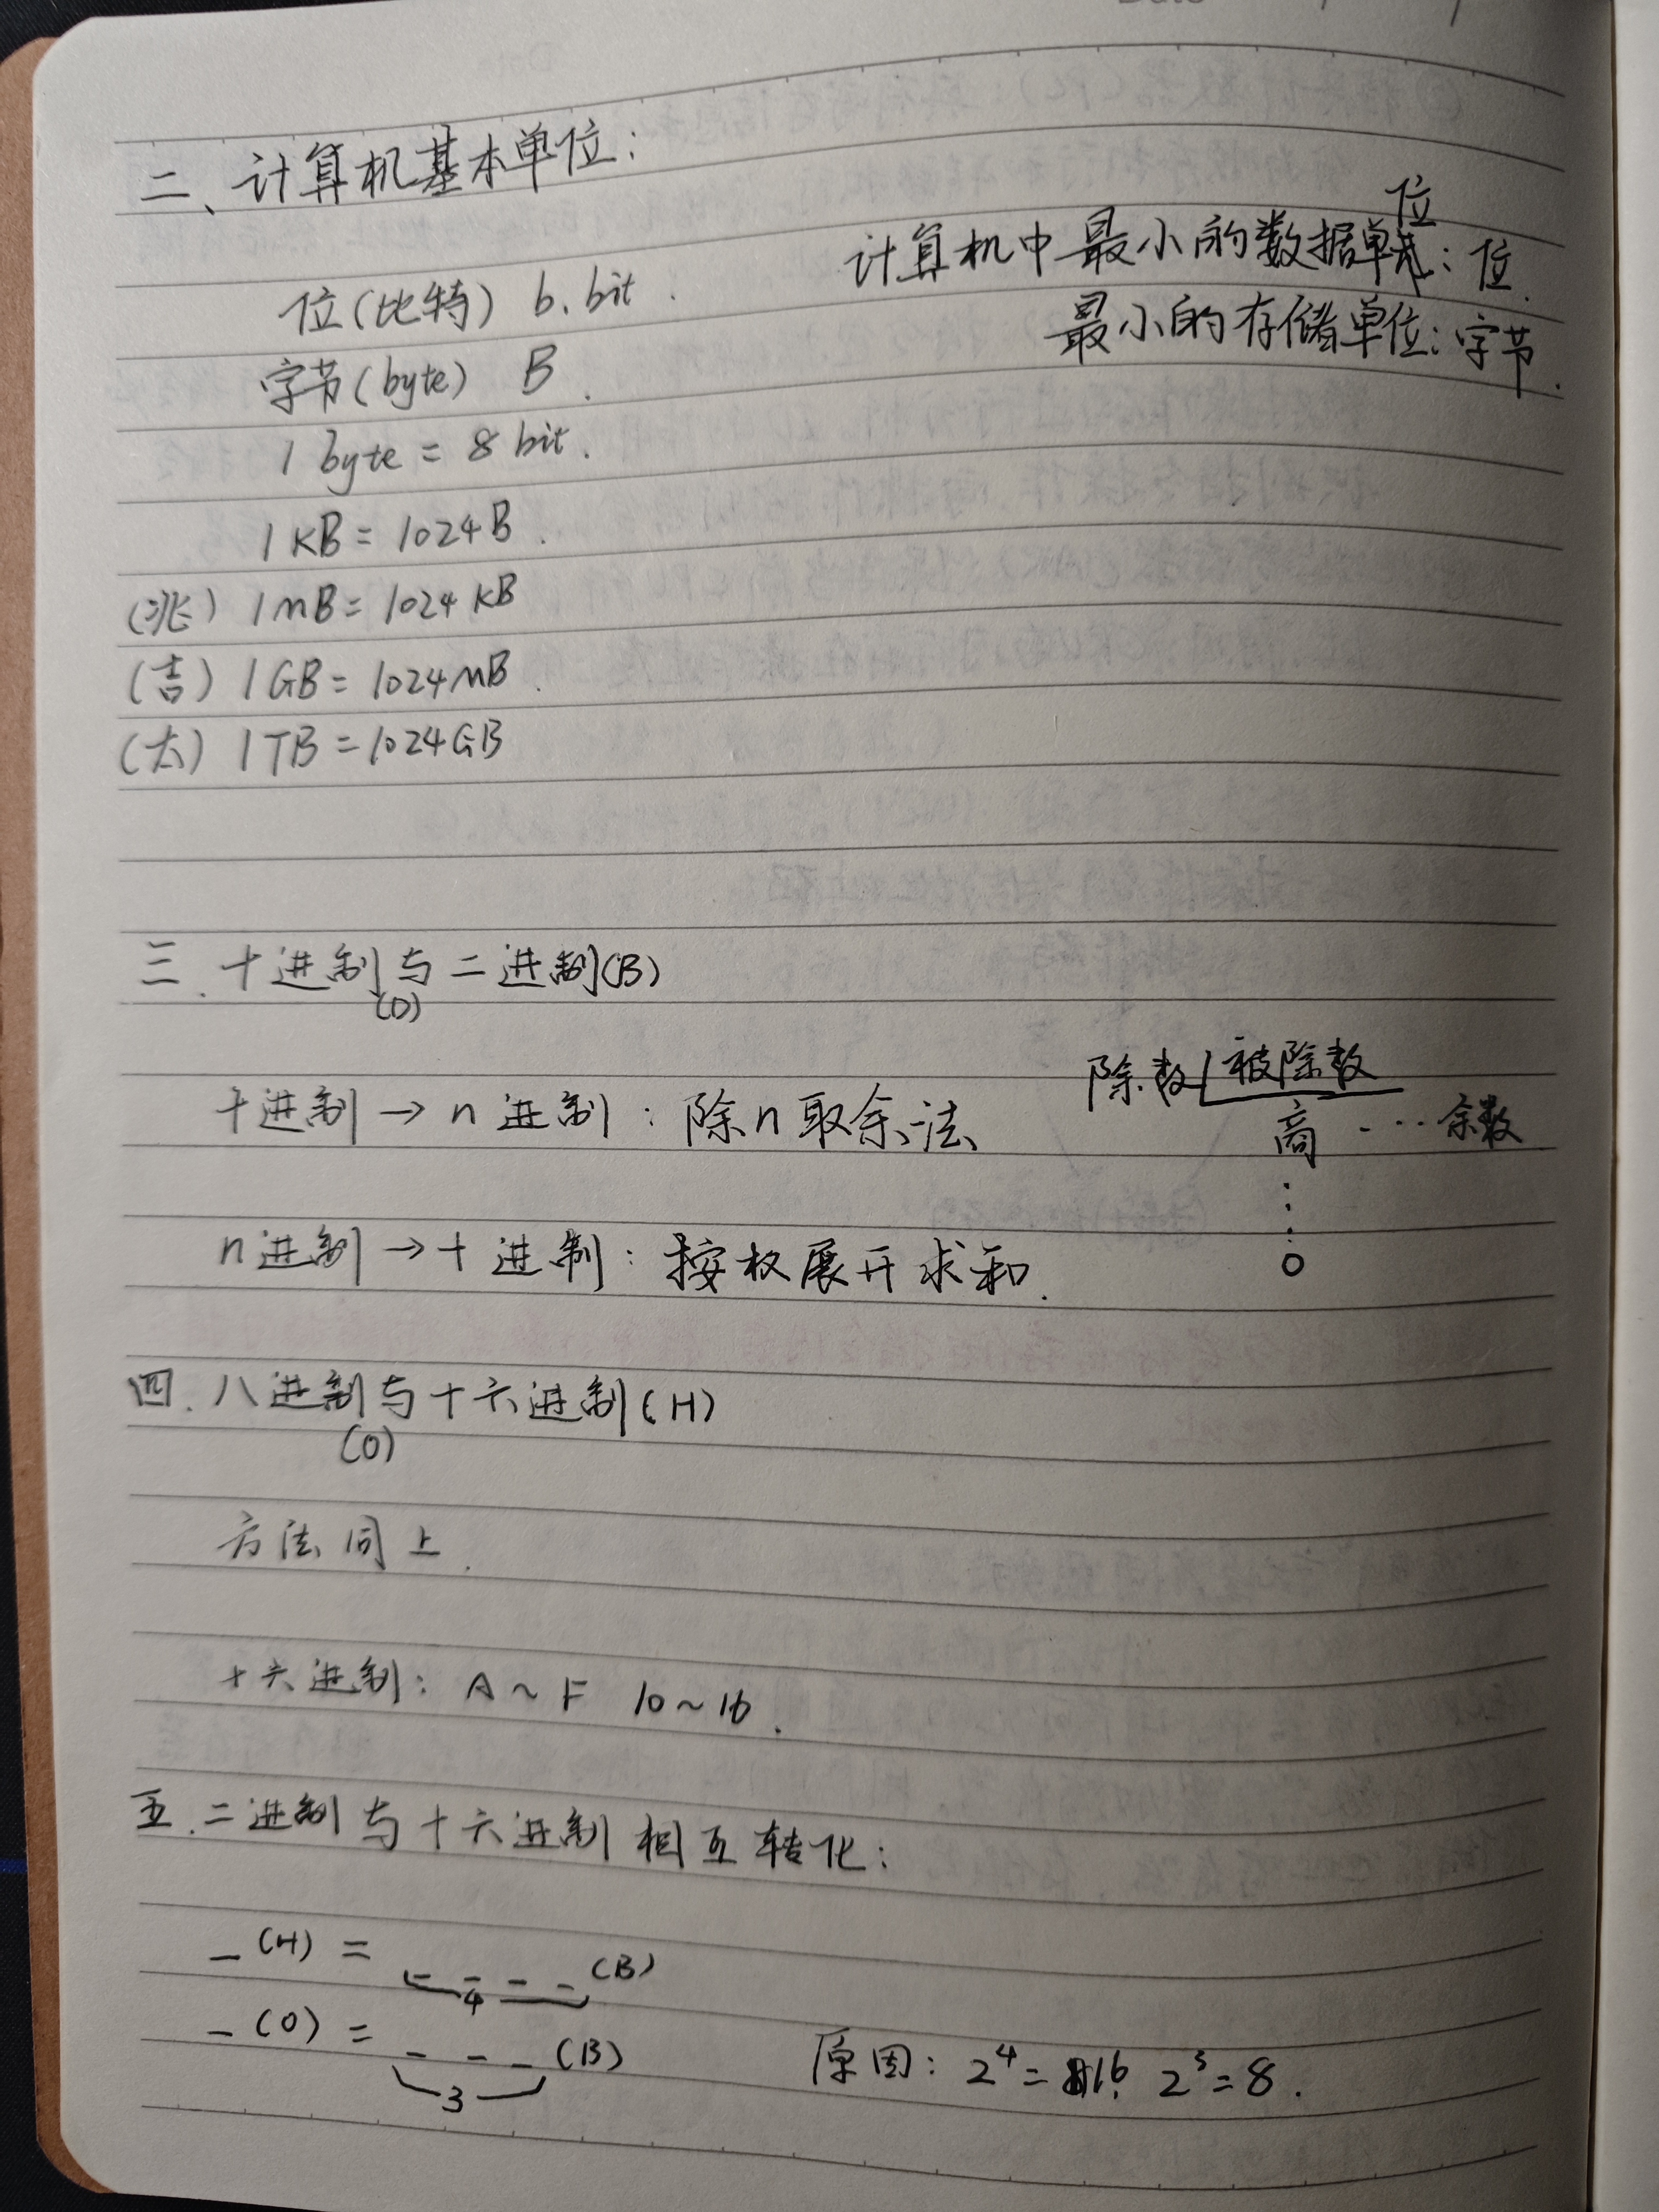 二、计算机基本单位:
位(比特) b. bit.
字节(byte) B.
1 byte = 8 bit.
1 KB = 1024B.
(兆) 1 mB = 1024 KB
(吉) 1 GB = 1024 mB.
(太) 1 TB = 1024 GB
计算机中最小的数据单位: 位.
最小的存储单位: 字节.
三. 十进制与二进制(B)
(D)
十进制 → n 进制: 除n取余法
除数 被除数
商 ··· 余数
⋮
0
n进制 → 十进制: 按权展开求和.
四. 八进制与十六进制(H)
(O)
方法同上.
十六进制: A ~ F 10 ~ 16.
五. 二进制与十六进制相互转化:
_ (H) = _ _ _ _ (B)
4
_ (O) = _ _ _ (B)
3
原因: 2⁴ = 16. 2³ = 8.